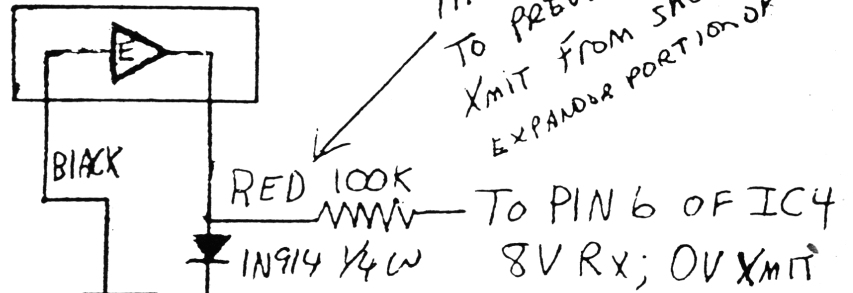 TO
XMIT FROM
EXPANDOR PORTION OF
E
BLACK
RED 100K
TO PIN 6 OF IC4
1N914 1/4 W
8V RX; 0V XMIT